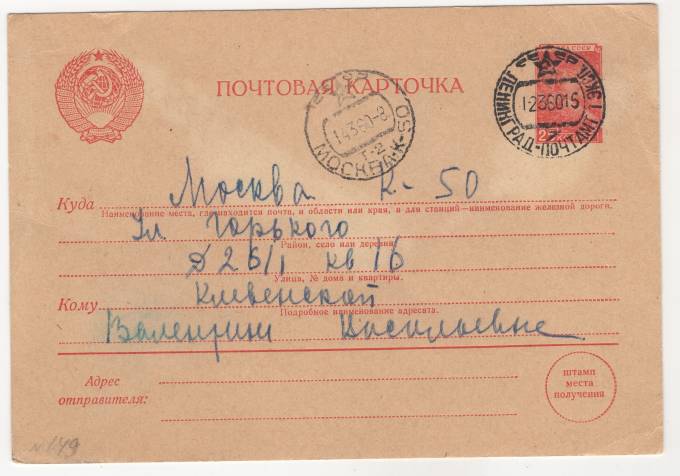 ПОЧТОВАЯ КАРТОЧКА
СССР
ЛЕНИНГРАД-ПОЧТАМТ
1236015
14360-8
Г-2
МОСКВА-К-50
Куда Москва К-50
Наименование места, где находится почта, и области или края, а для станций—наименование железной дороги.
Ул Горького
Район, село или деревня.
д 26/1 кв 16
Улица, № дома и квартиры.
Кому
Подробное наименование адресата.
Валентине Николаевне
Адрес
отправителя:
штамп
места
получения
№149